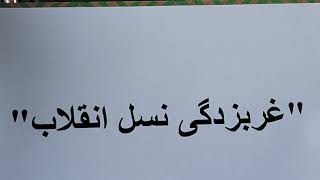 "غربزدگی نسل انقلاب"